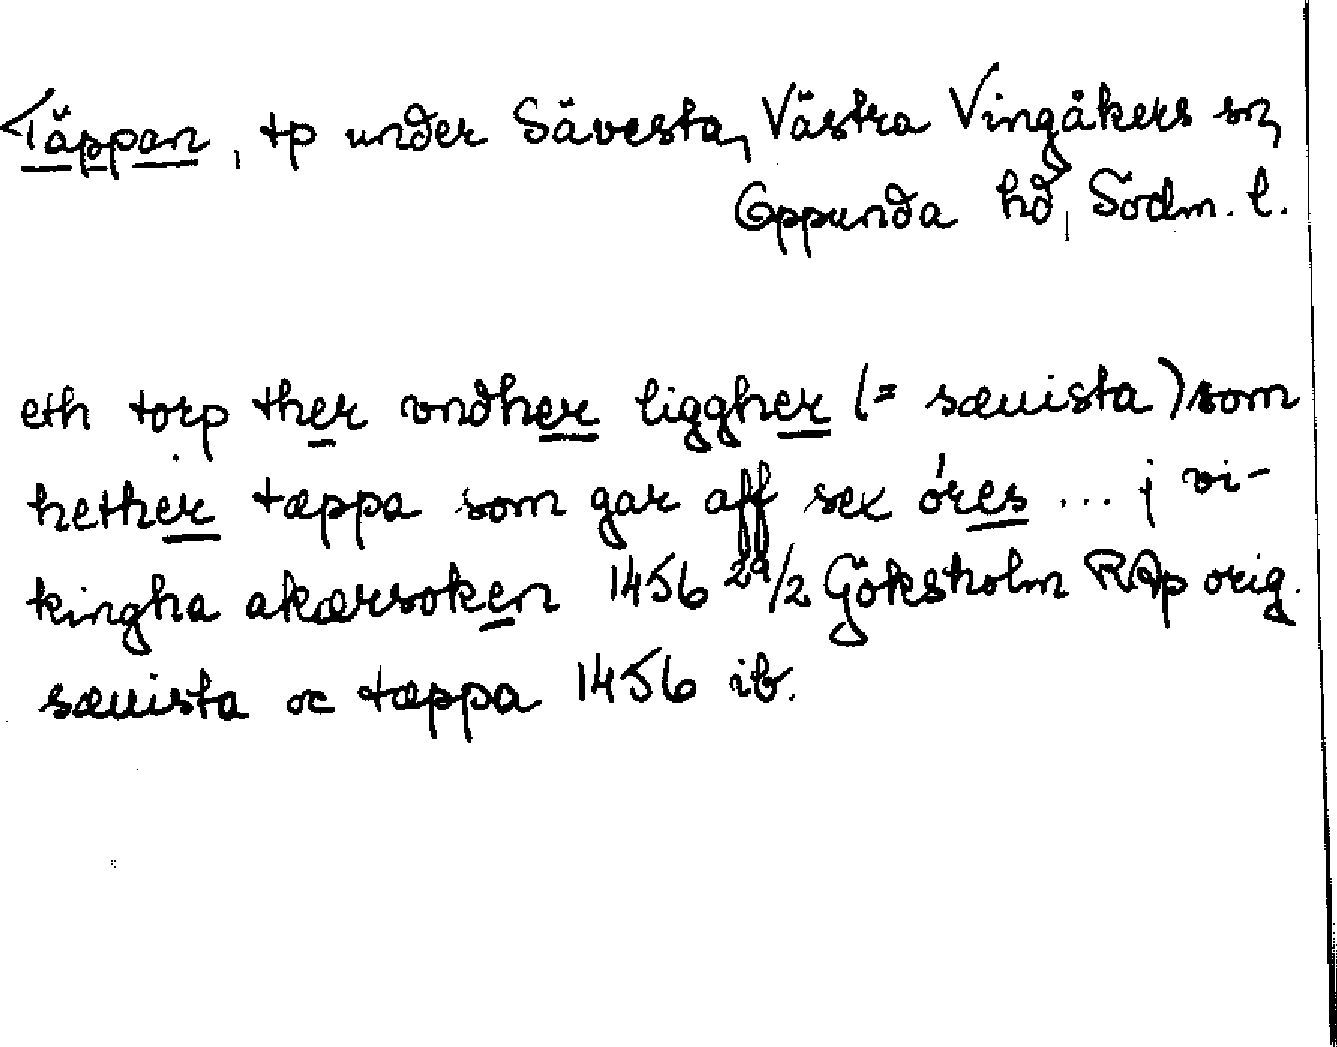 Täppan, tp under Sävesta, Västra Vingåkers sn,
Oppunda hd, Södm. l.
eth torp ther vndher liggher (= sæuista) som
hether tæppa som gar aff sex óres ... j vi-
kingha akærsoken 1456 29/2 Göksholm RAp orig.
sæuista oc tæppa 1456 ib.